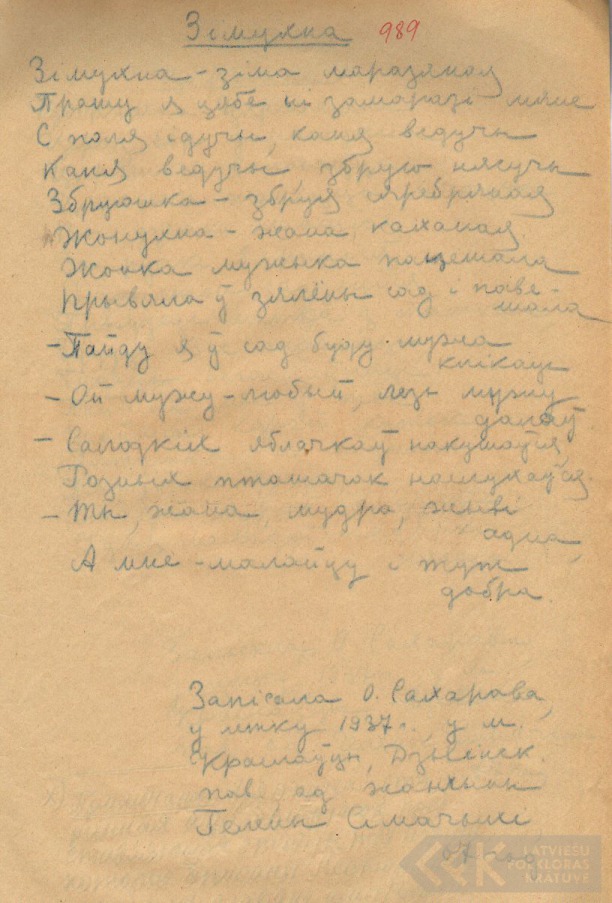 Зімухна 989
Зімухна - зіма маразяная
Прашу я цябе ні замаразі мяне
С поля ідучы, каня ведучы
Каня ведучы збрую нясучы
Збруюшка - збруя сяребряная
Жонухна - жана каханая
Жонка мужынка павешала
Прывяла ў зялёны сад і паве-
шала
- Пайду я ў сад буду мужа
клікаць
- Ой мужу - любый, лезь мужу
далоў
- Салодкіх яблачкаў накушаўся,
Розных пташачак наслухаўся
- Ты, жана, мудра, жыві
адна,
А мне - малайцу і тут
добра.
Запісала О. Сахарова,
у летку 1937 г. у м.
Краслаўцы, Дзвінск.
пав. ад жанчыны
Гелены Сімачыхі
67 год
LATVIEŠU
FOLKLORAS
KRĀTUVE